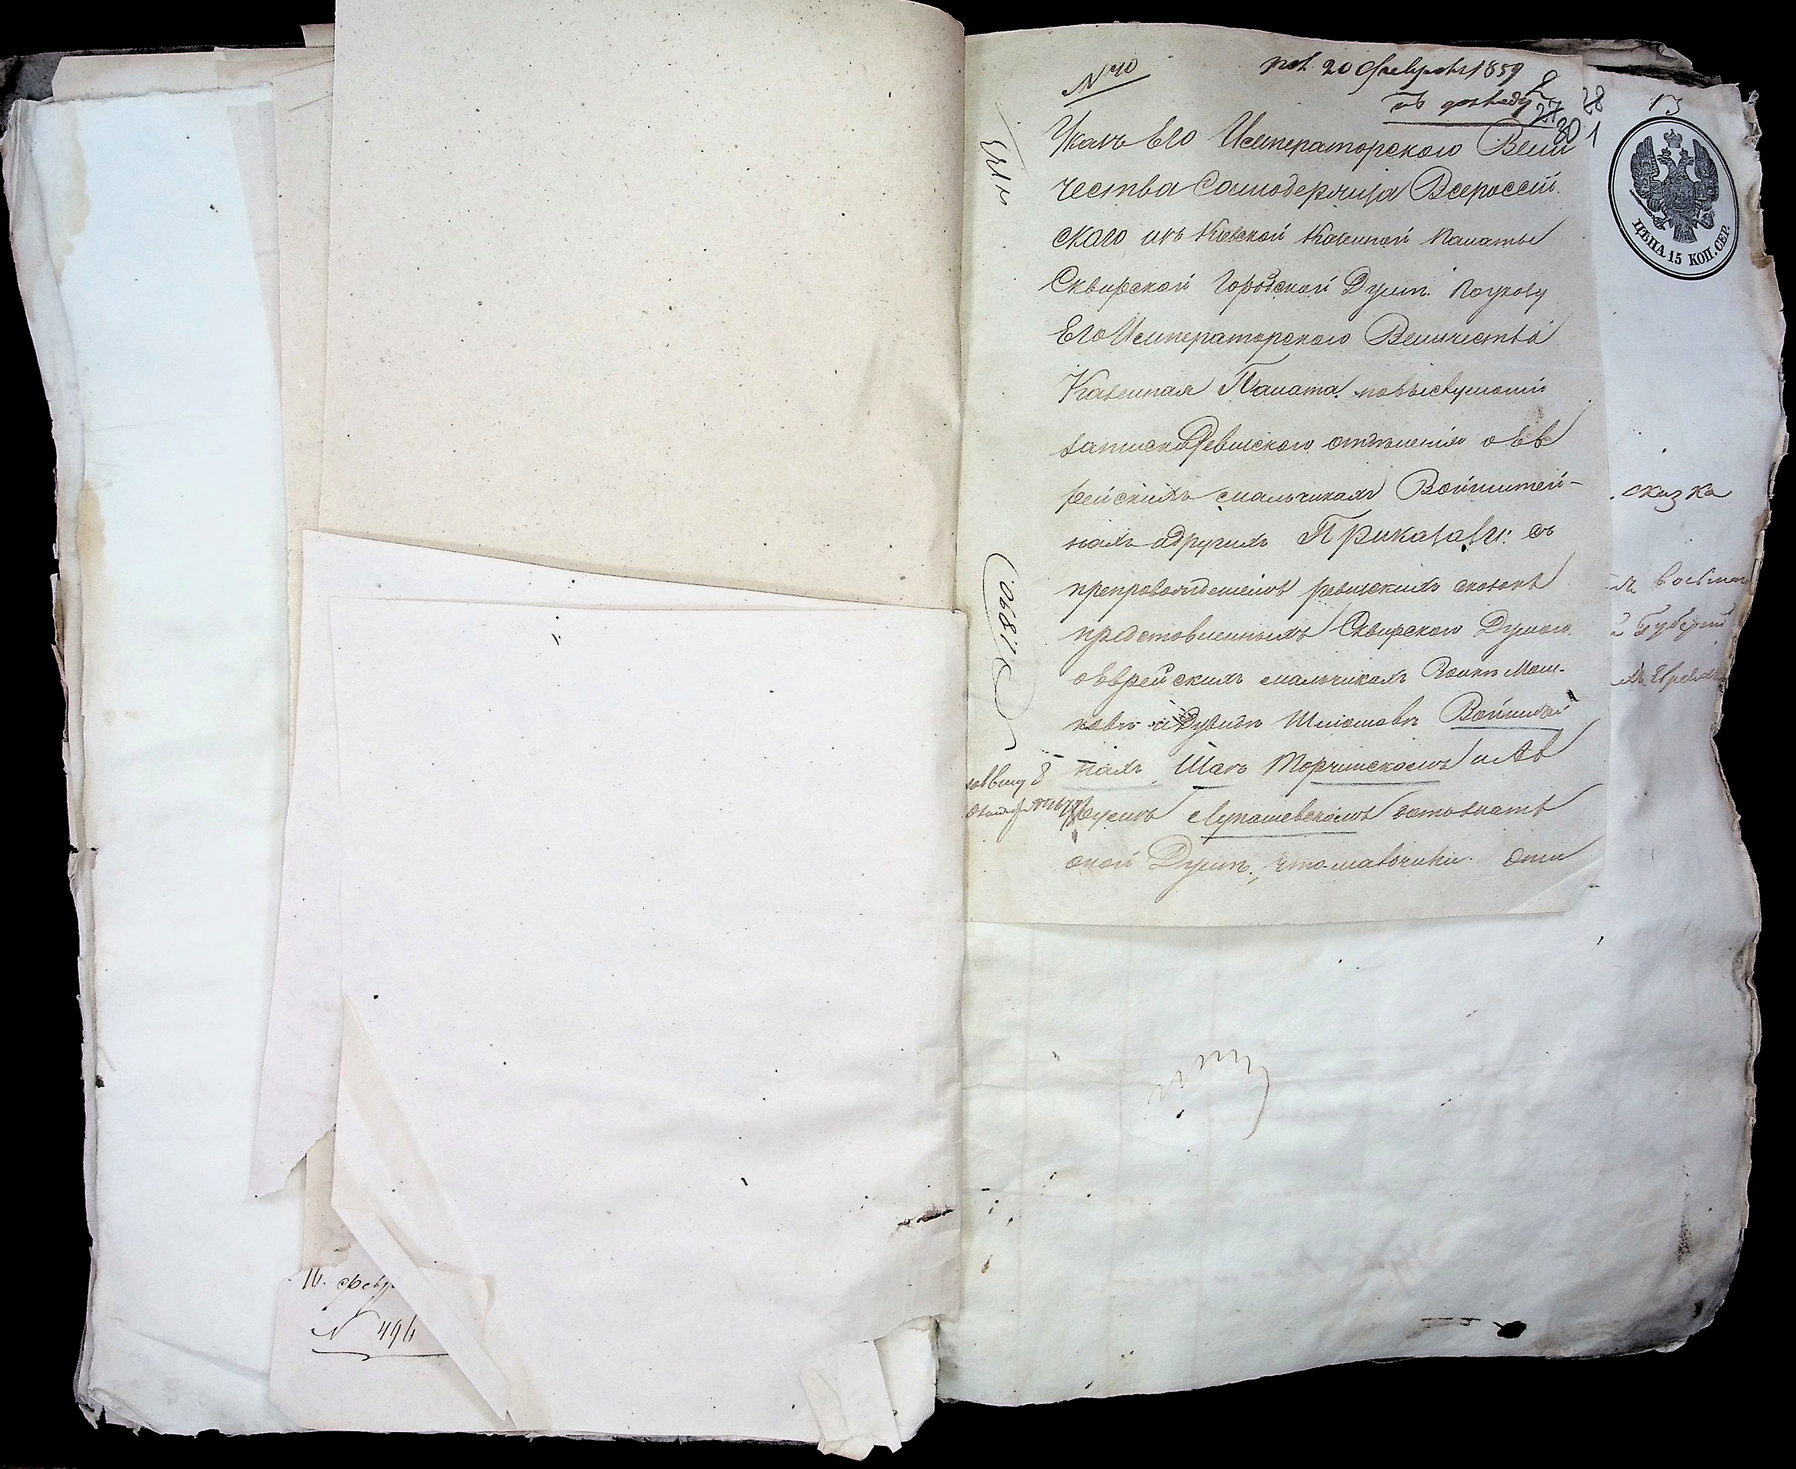 № 40
пол. 20 Февраля 1859
къ докладу
27 28
30 1
13
ЦѢНА 15 КОП. СЕР.
Указъ Его Императорскаго Вели
чества Самодержца Всероссій
скаго изъ Кіевской Казенной Палаты
Сквирской Городской Думѣ. По указу
Его Императорскаго Величества
Казенная Палата
записки Ревизскаго отдѣленія о Ев
рейскихъ мальчикахъ Войнштей-
нахъ и другихъ Приказали: съ
препровожденіемъ ревизскихъ сказокъ
представленныхъ Сквирскою Думою
о Еврейскихъ мальчикахъ Мош-
ковѣ и Шліомовѣ Войнштей
нахъ, Торчинскомъ и Ав
Лупашевскомъ дать знать
оной Думѣ, что мальчики эти
сказка
Губерніи
16. февр
№ 494